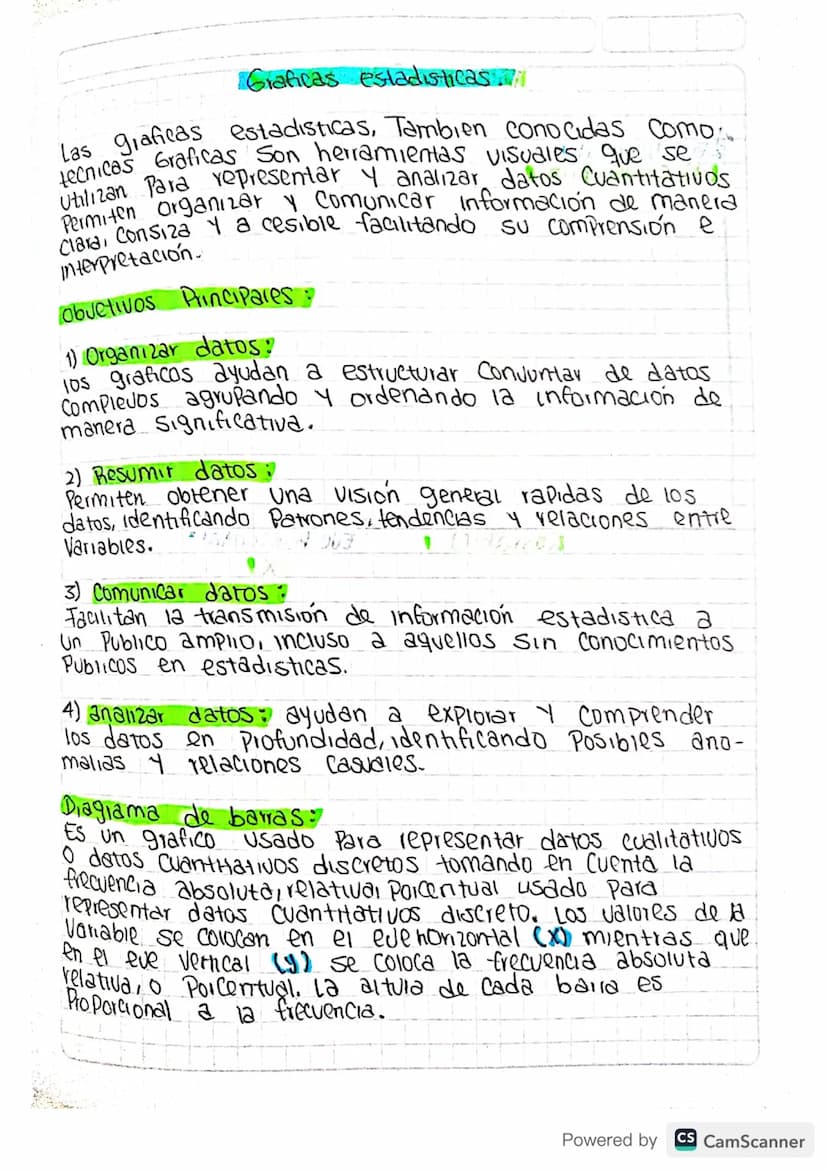 Graficas estadisticas.
Las graficas estadisticas, Tambien conocidas como
tecnicas Graficas Son herramientas visuales que se
utilizan Para representar y analizar datos Cuantitativos
Permiten organizar y comunicar información de manera
clara, Consiza y a cesible facilitando su comprensión e
interpretación.
objetivos Principales:
1) Organizar datos:
los graficos ayudan a estructurar Conjuntar de datos
complejos agrupando y ordenando la información de
manera significativa.
2) Resumir datos:
Permiten obtener una visión general rapidas de los
datos, identificando Patrones, tendencias y relaciones entre
Variables.
3) Comunicar datos:
Facilitan la transmisión de información estadistica a
un Publico amplio, incluso a aquellos sin conocimientos
Publicos en estadisticas.
4) analizar datos: ayudan a explorar y comprender
los datos en Profundidad, identificando Posibles ano-
malias y relaciones casuales.
Diagrama de barras:
Es un grafico usado Para representar datos cualitativos
o datos cuantitativos discretos tomando en cuenta la
frecuencia absoluta, relativa, Porcentual usado para
representar datos cuantitativos discreto. Los valores de la
Variable se colocan en el eje horizontal (x) mientras que
en el eje vertical (y) se coloca la frecuencia absoluta
relativa, o Porcentual. La altura de cada barra es
Proporcional a la frecuencia.
Powered by CS CamScanner